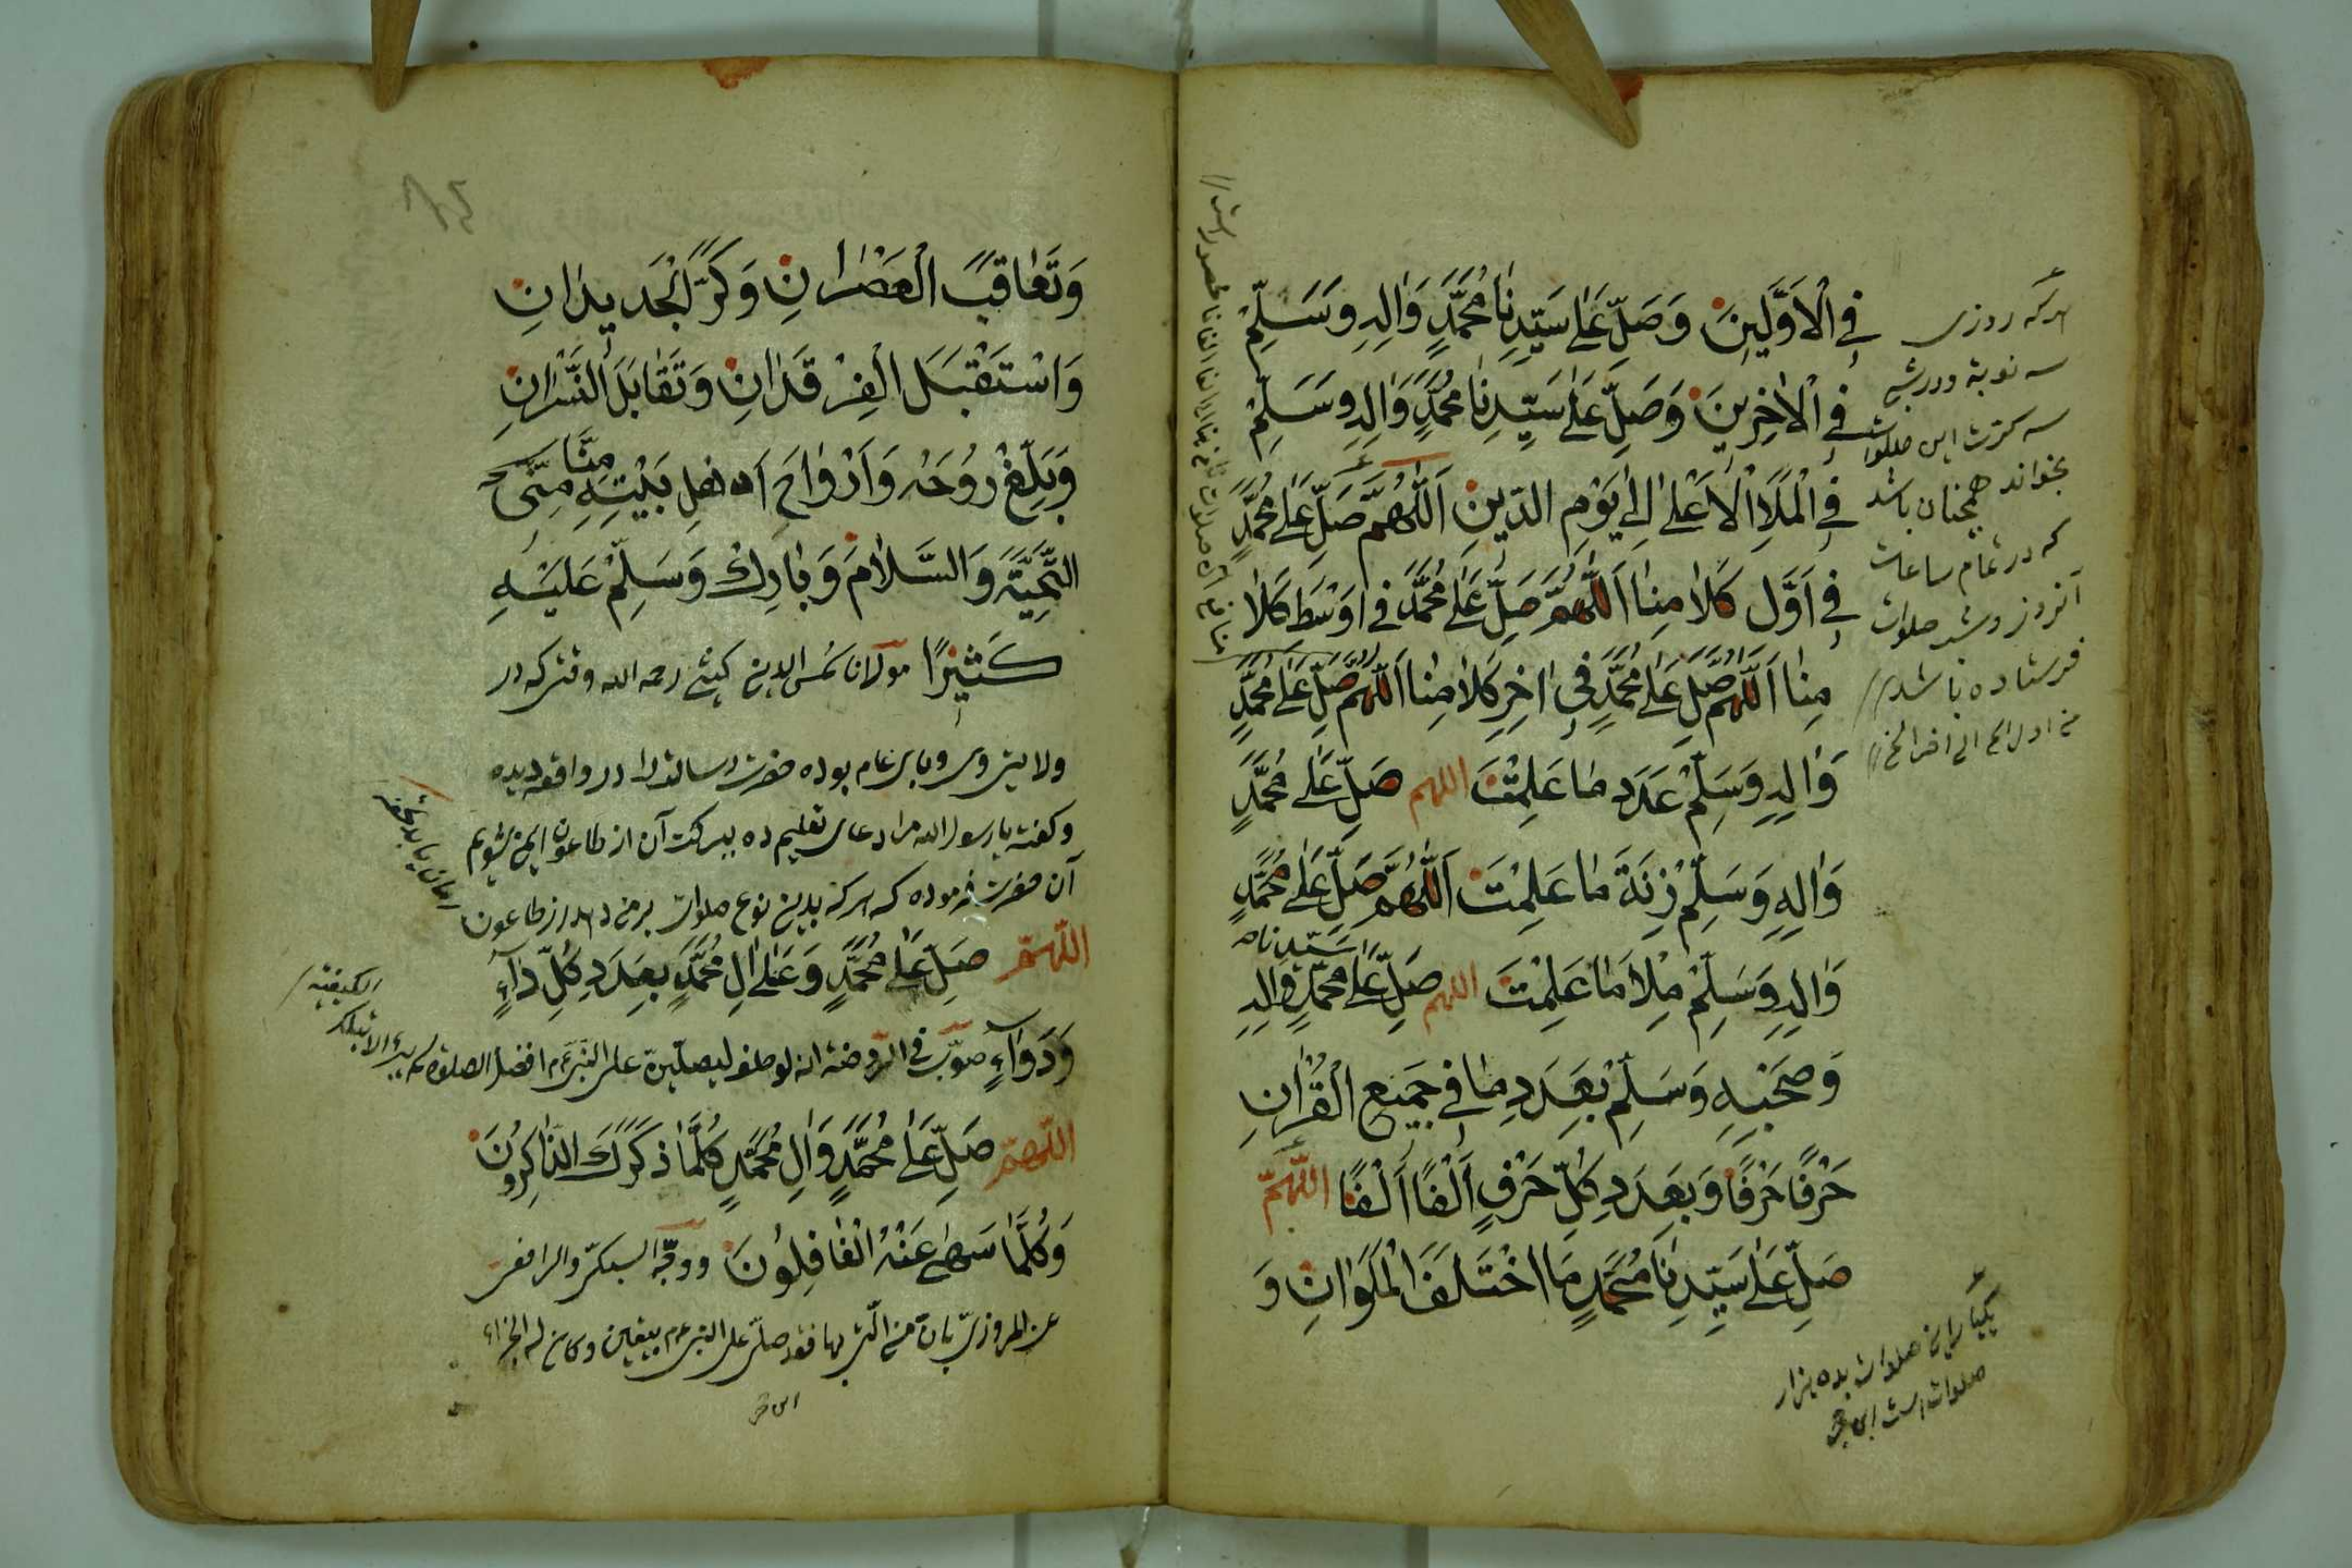 فِي الْاَوَّلِينَ وَصَلِّ عَلٰى سَيِّدِنَا مُحَمَّدٍ وَاٰلِهِ وَسَلِّمْ
فِي الْاٰخِرِينَ وَصَلِّ عَلٰى سَيِّدِنَا مُحَمَّدٍ وَاٰلِهِ وَسَلِّمْ
فِي الْمَلَاِ الْاَعْلٰى اِلٰى يَوْمِ الدِّينِ اَللّٰهُمَّ صَلِّ عَلٰى مُحَمَّدٍ
فِي اَوَّلِ كَلَامِنَا اَللّٰهُمَّ صَلِّ عَلٰى مُحَمَّدٍ فِي اَوْسَطِ كَلَا
مِنَا اَللّٰهُمَّ صَلِّ عَلٰى مُحَمَّدٍ فِي اٰخِرِ كَلَامِنَا اَللّٰهُمَّ صَلِّ عَلٰى مُحَمَّدٍ
وَاٰلِهِ وَسَلِّمْ عَدَدَ مَا عَلِمْتَ اللهم صَلِّ عَلٰى مُحَمَّدٍ
وَاٰلِهِ وَسَلِّمْ زِنَةَ مَا عَلِمْتَ اَللّٰهُمَّ صَلِّ عَلٰى مُحَمَّدٍ
وَاٰلِهِ وَسَلِّمْ مِلَاَ مَا عَلِمْتَ اللهم صَلِّ عَلٰى سَيِّدِنَا مُحَمَّدٍ وَاٰلِهِ
وَصَحْبِهِ وَسَلِّمْ بِعَدَدِ مَا فِي جَمِيعِ الْقُرْاٰنِ
حَرْفًا حَرْفًا وَبِعَدَدِ كُلِّ حَرْفٍ اَلْفًا اَلْفًا اللّٰهُمَّ
صَلِّ عَلٰى سَيِّدِنَا مُحَمَّدٍ مَا اخْتَلَفَ الْمَلَوَانِ وَ
هر که روزی
سه نوبة ودر شب
سه کرت این صلوات
بخواند همچنان باشد
که در تمام ساعات
آنروز وشب صلوات
فرستاده باشد
یکبار این صلوات بده هزار
صلوات است
وَتَعَاقَبَ الْعَصْرَانِ وَكَرَّ الْجَدِيدَانِ
وَاسْتَقْبَلَ الْفَرْقَدَانِ وَتَقَابَلَ النَّسْرَانِ
وَبَلِّغْ رُوحَهُ وَاَرْوَاحَ اَهْلِ بَيْتِهِ مِنَّا مِنِّي
التَّحِيَّةَ وَالسَّلَامَ وَبَارِكْ وَسَلِّمْ عَلَيْهِ
كَثِيرًا مولانا شمس الدین کیشی رحمه الله وقتی که در
ولایتی وی وبای عام بوده حضرت رسالت را در واقعه دیده
وکفته یا رسول الله مرا دعای تعلیم ده ببرکت آن از طاعون ایمن شویم
آن حضرت فرموده که هر که بدین نوع صلوات بر من دهد از طاعون
امان یابد
اللّٰهُمَّ صَلِّ عَلٰى مُحَمَّدٍ وَعَلٰى اٰلِ مُحَمَّدٍ بِعَدَدِ كُلِّ دَاءٍ
وَدَوَاءٍ صوّب فی الروضة انه لو حلف لیصلین علی النبی عم افضل الصلوة لم یبرء الا بتلک
الکیفیة
اللّٰهُمَّ صَلِّ عَلٰى مُحَمَّدٍ وَاٰلِ مُحَمَّدٍ كُلَّمَا ذَكَرَكَ الذَّاكِرُونَ
وَكُلَّمَا سَهٰى عَنْهُ الْغَافِلُونَ ووجّه السبکی والرافعی
عن المروزی بان من اتی بها فقد صلی علی النبی عم بیقین وکان له الجزاء